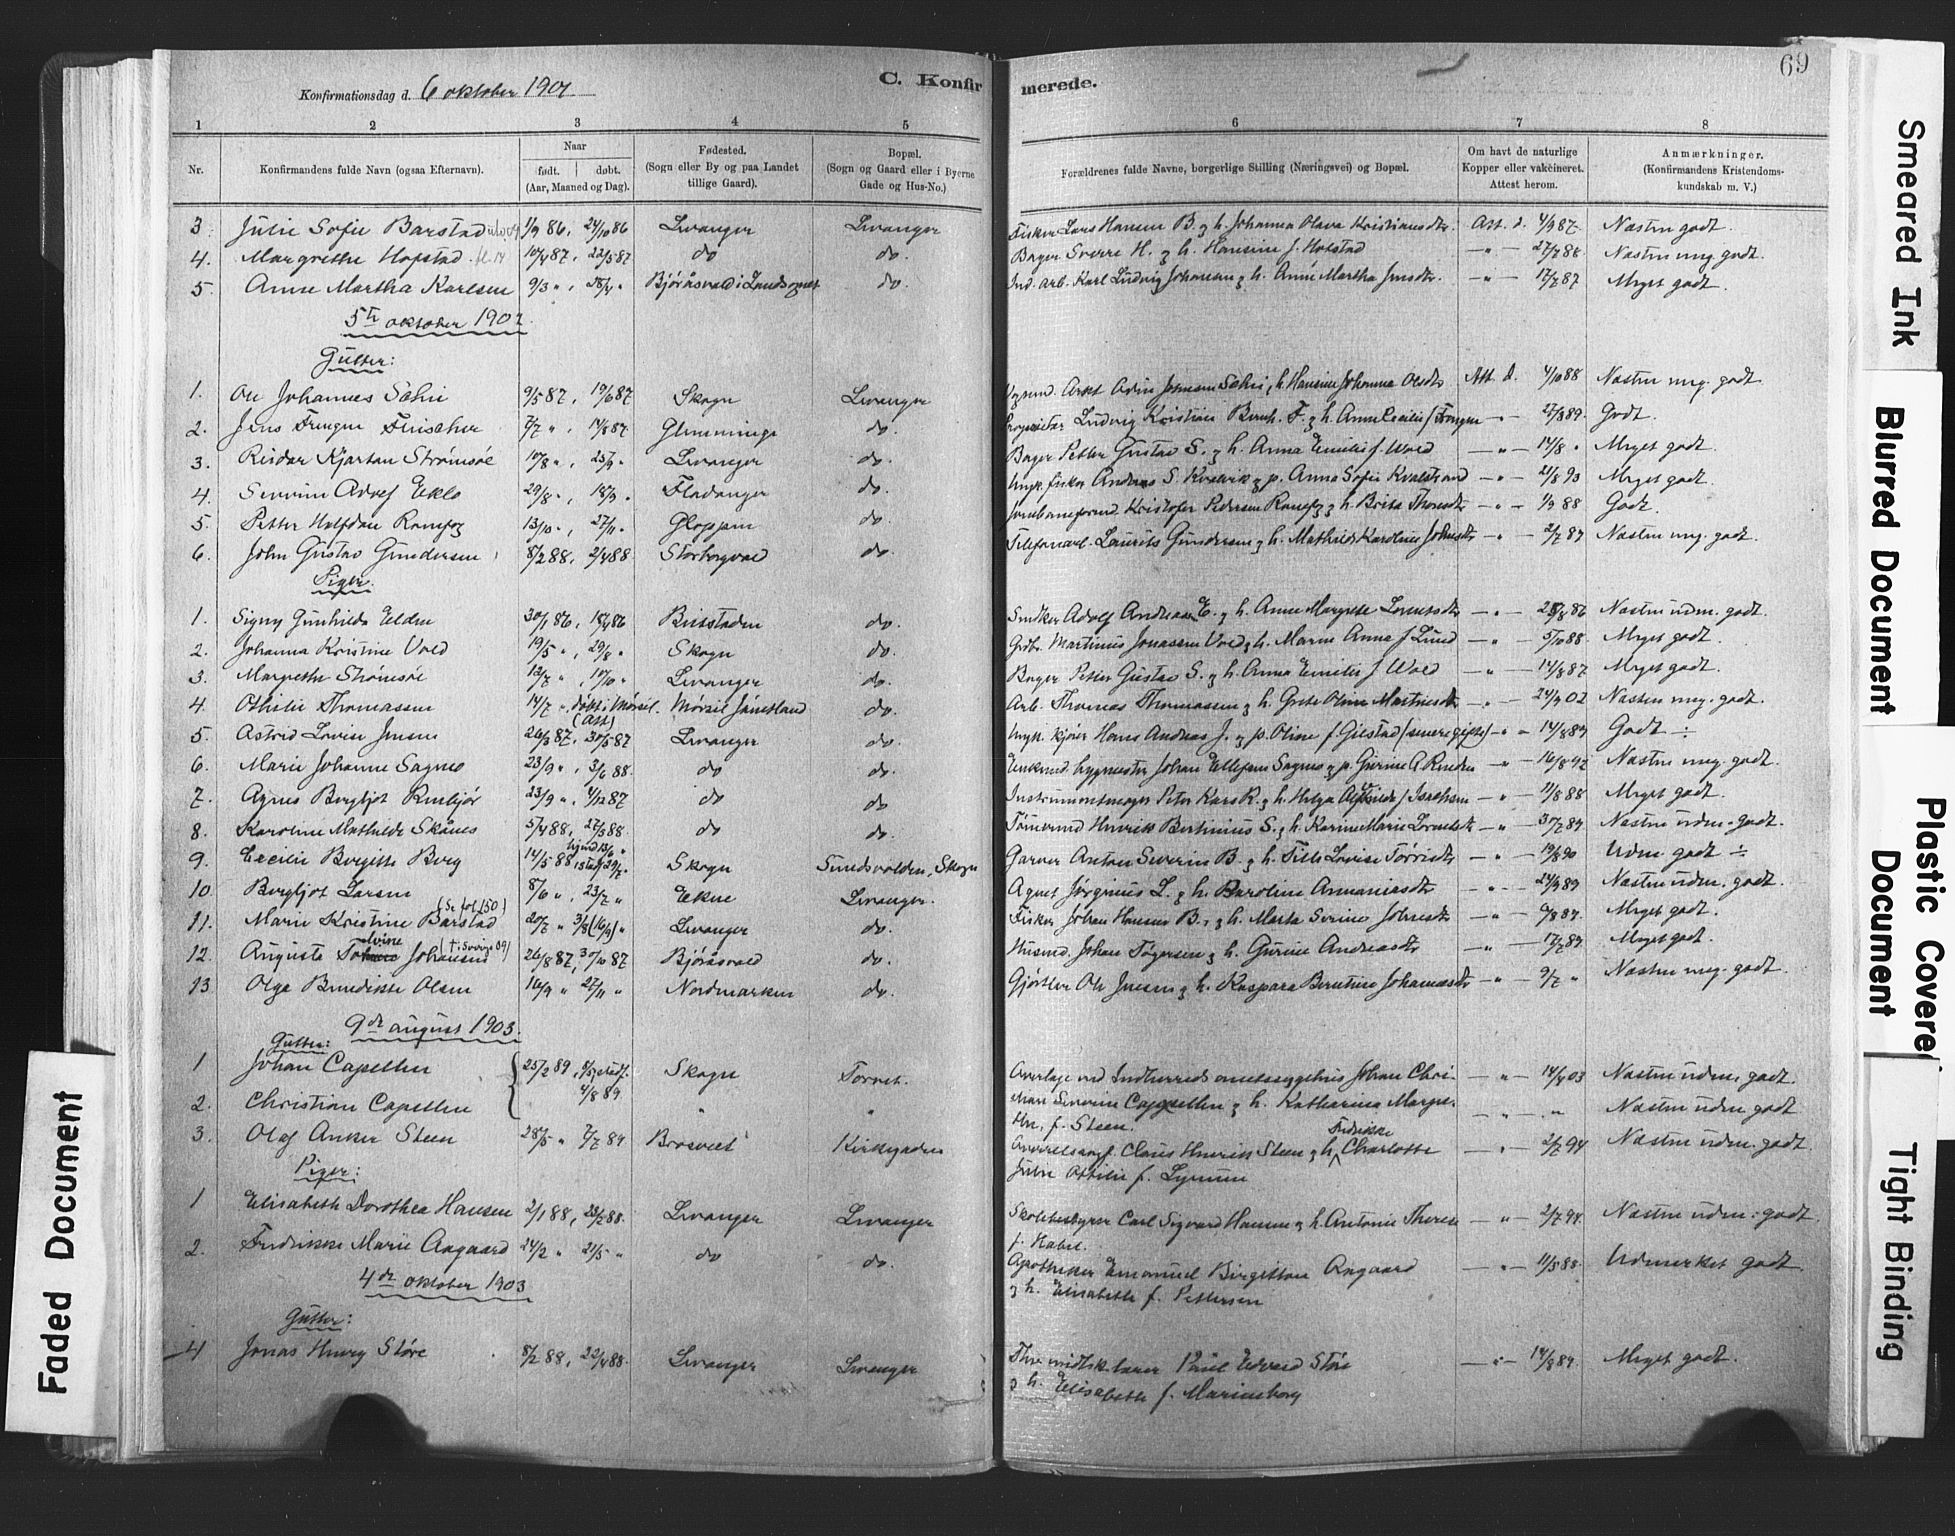 69
C. Konfirmerede.
Konfirmationsdag d. 6 oktober 1901
1 2 3 4 5 6 7 8
Nr. Konfirmandens fulde Navn (ogsaa Efternavn). Naar født. døbt. (Aar, Maaned og Dag). Fødested. (Sogn eller By og paa Landet tillige Gaard). Bopæl. (Sogn og Gaard eller i Byerne Gade og Hus-No.) Forældrenes fulde Navne, borgerlige Stilling (Næringsvei) og Bopæl. Om havt de naturlige Kopper eller vakcineret. Attest herom. Anmærkninger. (Konfirmandens Kristendomskundskab m. V.)
3. Julie Sofie Barstad 1/9 86, 24/10 86 Levanger Levanger Fisker Lars Hansen B. & h. Johanna Olava Kristiansdtr. Att. d. 4/9 87. Næsten godt.
4. Margrethe Hofstad 10/4 87, 22/5 87 do do. Bager Sverre H. & h. Hansine f. Hofstad - " - 27/7 88 Næsten meg. godt.
5. Anne Martha Karlsen 9/3 ", " Bjøråsvald i Landsognet do. Ind. arb. Karl Ludvig Johansen & h. Anne Martha Jensdtr. - " - 17/7 87 Meget godt.
5te oktober 1902.
Gutter:
1. Ole Johannes Salni 9/5 87, 19/6 87 Skogn Levanger Johnsen h. Hansine Johanna Olsdtr Att. d. 4/10 88 Næsten meg. godt
2. Jens Frengen Finscher 7/7 ", 14/8 87 Glemminge do. Proprietær Ludvig Kristian Bernh. F. & h. Anne Cecilie f. Frengen - " - 27/8 89. Godt.
3. Reidar Kjartan Strømsøe 10/8 ", 25/9 " Levanger do. Bager Petter Gustav S. & h. Anna Emilie f. Wold - " - 14/8 " Meget godt.
4. Severin Adolf Eklo 29/8 ", 18/9 " Fladanger do. Ungk. fisker Andreas S. Kvelvik & p. Anna Sofie Kvalstrand - " - 21/8 93 Meget godt.
5. Petter Halfdan Ramfog 13/10 ", 27/11 " Gloppem do. Jernbaneformd. Kristofer Pedersen & h. Brita Thorsdtr - " - 1/9 88 Godt.
6. John Gustav Gundersen 8/2 88, 2/4 88 Storborgvald do Telefonarb. Laurits Gundersen & h. Mathilde Karoline Johnsdtr - " - 2/7 89 Næsten meg. godt.
Piger.
1. Signy Gunhilda Elden 30/1 86, 18/4 86 Beitstaden do. Snedker Adolf Andreas E. & h. Anne Margrete Lorentsdtr - " - 25/8 86 Næsten udm. godt.
2. Johanna Kristine Vold 19/5 ", 29/8 " Skogn do. Grdbr. Martinius Jonassen Vold & h. Maren Anna f. Lund - " - 5/10 88 Meget godt.
3. Margrethe Strømsøe 12/7 ", 10/10 " Levanger do. Bager Petter Gustav S. & h. Anna Emilie f. Wold - " - 14/8 87 Meget godt.
4. Othilie Thomassen 14/7 ", døbt i Mørsil. (Att) Mørsil Jämtland do. Arb. Thomas Thomassen & h. Grete Oline Martinsdtr - " - 24/9 02 Næsten meg. godt.
5. Astrid Lovise Jensen 26/3 87, 30/5 87 Levanger do. Ungk. kjører Hans Andreas J. & p. Oline f. Gilstad (senere gifte) - " - 14/8 89 Godt ÷
6. Marie Johanne Sagmo 23/9 ", 3/6 88. do do. Enkemd. bygmester Johan Ellefsen Sagmo & p. Gurine - " - 16/8 92 Næsten meg. godt.
7. Agnes Bergljot Renbjør 23/9 ", 4/12 87 do do Instrumentmager Peter Kars R. & h. Helga f. Isachsen - " - 11/8 88 Meget godt.
8. Karoline Mathilde Skånes 5/4 88, 27/5 88. do do. Tømermd Henrik Bertinius S. & h. Karine Marie Lorentsdtr - " - 3/7 89 Næsten udm. godt.
9. Cecilie Birgitte Berg 14/5 88 hjmd 13/6 " i stad. 29/7 " Skogn Sundsvolden, Skogn Garver Anton Severin B. & h. Lovise - " - 19/8 90 Udm. godt ÷
10. Bergljot Larsen 8/6 ", 23/7 " Ekne Levanger. Agent Jørginus L. & h. Karoline Annaniasdtr - " - 24/9 89 Næsten udm. godt.
11. Marie Kristine Barstad (Se fol 150) 20/7 " 3/8 (16/9) " Levanger do. Fisker Johan Hansen B. & h. Marta Serine Johnsdtr - " - 6/8 87. Meget godt.
12. Augusta Johansen († Sverige 09) 26/8 87, 30/10 87 Bjøråsvald do. Husmd. Johan Tøgersen & h. Gurine Andreasdtr - " - 17/7 89 Meget godt.
13. Olga Benedikte Olsen 16/9 " 27/11 " Nordmarken do. Gjørtler Ole Jensen & h. Kaspara Berntine Johannesdtr - " - 9/7 " Næsten meg. godt.
9de august 1903.
Gutter:
1 Johan Capellen 25/2 89, 8/5 stedf. 4/8 89 Skogn Torvet. Overlæge ved Indherreds amtssygehus Johan Christian Severin Cappellen & h. Katharina Margrethe, f. Steen. - " - 14/4 03 Næsten udm. godt.
2. Christian Capellen " " - " - " Næsten udm godt
3. Olaf Anker Steen 28/5 " 7/7 89 Borsvet Kirkegaden Claus Henrik Steen & h. Fredrikke Charlotte Julie Ottilie f. - " - 2/7 94 Næsten udm. godt.
Piger:
1 Elisabeth Dorothea Hansen 2/1 88, 23/2 88. Levanger Levanger Skolebestyrer Carl Sigvard Hansen & h. Antonie Therese f. Habel. - " - 2/7 94. Næsten udm. godt
2. Fredrikke Marie Aagaard 24/2 " 21/5 " do do. Apotheker Emanuel Birgithon Aagaard & h. Elisabeth f. Pettersen - " - 11/5 88. Udmerket godt.
4de oktober 1903
Gutter:
1 Jonas Henry Støre 8/2 88, 22/4 88. Levanger Levanger Paul Edvard Støre & h. Elisabeth f. Marienborg - " - 14/8 89. Meget godt.
Smeared Ink
Blurred Document
Plastic Covered Document
Tight Binding
Faded Document